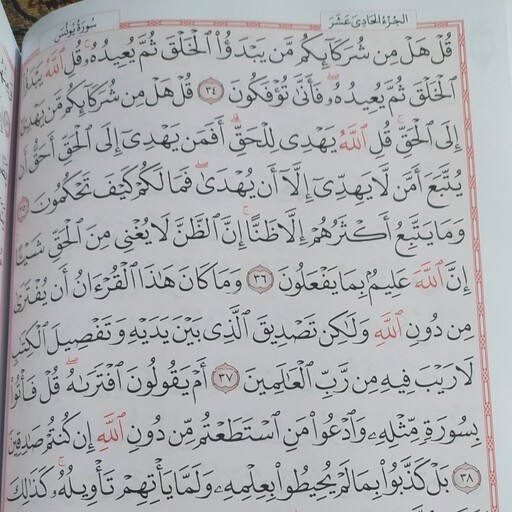 الجزء الحادي عشر
سورة يونس
قُلْ هَلْ مِن شُرَكَآئِكُم مَّن يَبْدَؤُا۟ ٱلْخَلْقَ ثُمَّ يُعِيدُهُۥ ۚ قُلِ ٱللَّهُ يَبْدَؤُا۟
ٱلْخَلْقَ ثُمَّ يُعِيدُهُۥ ۖ فَأَنَّىٰ تُؤْفَكُونَ ٣٤ قُلْ هَلْ مِن شُرَكَآئِكُم مَّن يَهْدِىٓ
إِلَى ٱلْحَقِّ ۚ قُلِ ٱللَّهُ يَهْدِى لِلْحَقِّ ۗ أَفَمَن يَهْدِىٓ إِلَى ٱلْحَقِّ أَحَقُّ أَن
يُتَّبَعَ أَمَّن لَّا يَهِدِّىٓ إِلَّآ أَن يُهْدَىٰ ۖ فَمَا لَكُمْ كَيْفَ تَحْكُمُونَ ٣٥
وَمَا يَتَّبِعُ أَكْثَرُهُمْ إِلَّا ظَنًّا ۚ إِنَّ ٱلظَّنَّ لَا يُغْنِى مِنَ ٱلْحَقِّ شَيْـًٔا
إِنَّ ٱللَّهَ عَلِيمٌۢ بِمَا يَفْعَلُونَ ٣٦ وَمَا كَانَ هَٰذَا ٱلْقُرْءَانُ أَن يُفْتَرَىٰ
مِن دُونِ ٱللَّهِ وَلَٰكِن تَصْدِيقَ ٱلَّذِى بَيْنَ يَدَيْهِ وَتَفْصِيلَ ٱلْكِتَٰبِ
لَا رَيْبَ فِيهِ مِن رَّبِّ ٱلْعَٰلَمِينَ ٣٧ أَمْ يَقُولُونَ ٱفْتَرَىٰهُ ۖ قُلْ فَأْتُوا۟
بِسُورَةٍ مِّثْلِهِۦ وَٱدْعُوا۟ مَنِ ٱسْتَطَعْتُم مِّن دُونِ ٱللَّهِ إِن كُنتُمْ صَٰدِقِينَ
٣٨ بَلْ كَذَّبُوا۟ بِمَا لَمْ يُحِيطُوا۟ بِعِلْمِهِۦ وَلَمَّا يَأْتِهِمْ تَأْوِيلُهُۥ ۚ كَذَٰلِكَ